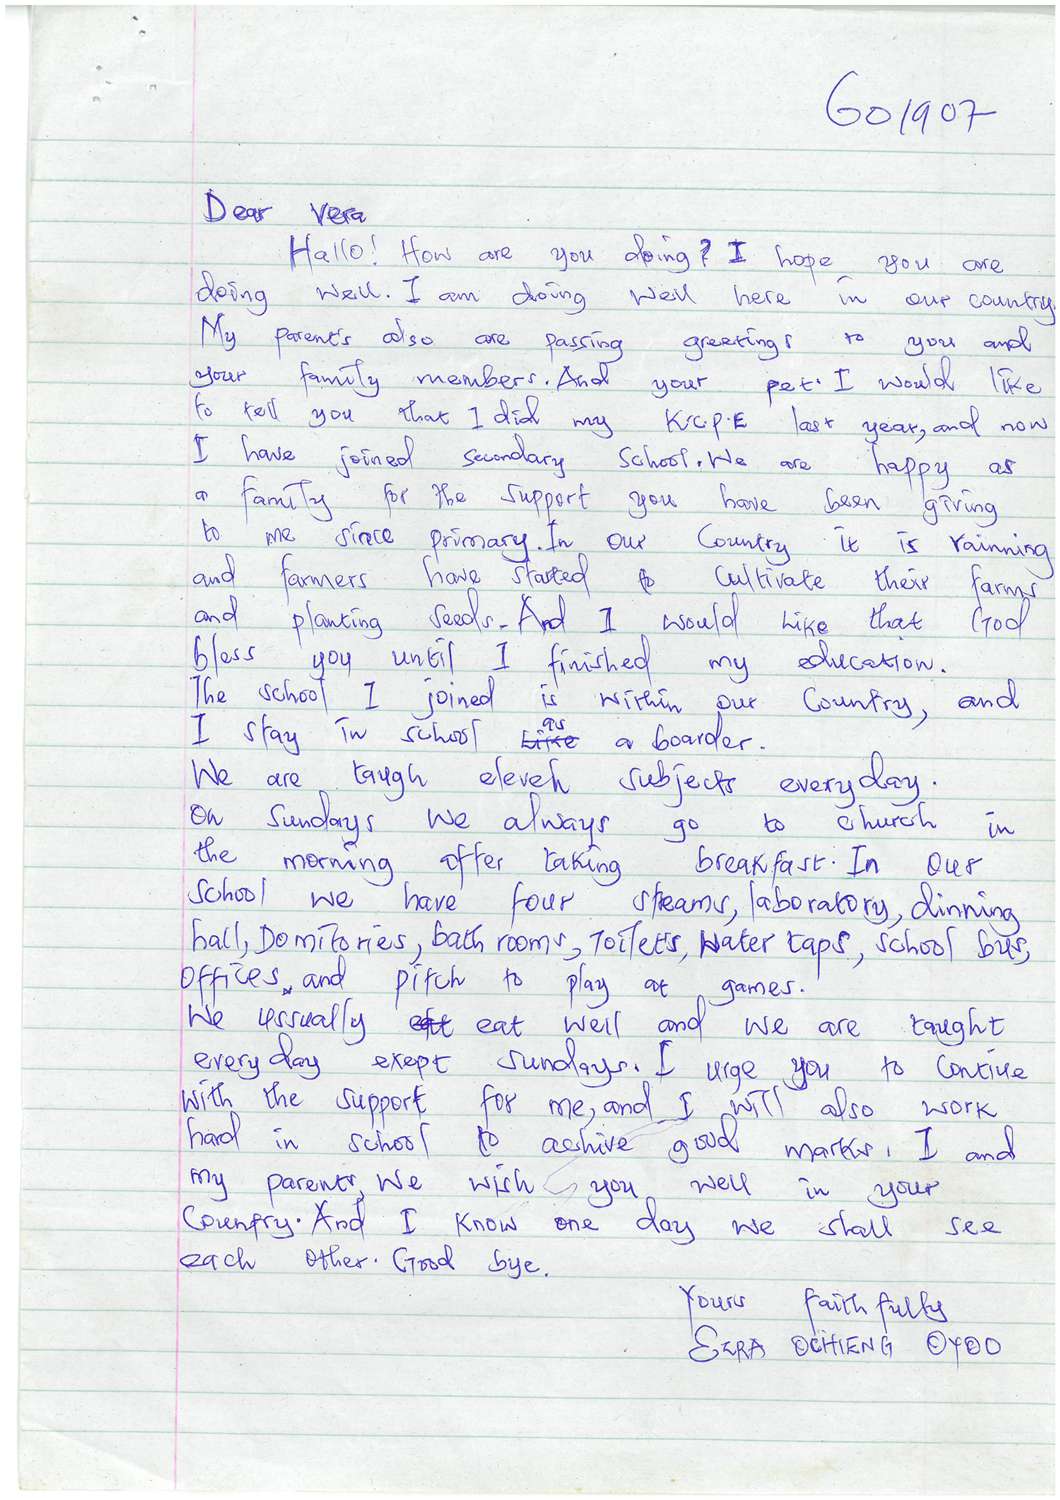 601907
Dear Vera
Hallo! How are you doing? I hope you are
doing well. I am doing well here in our country.
My parents also are passing greetings to you and
your family members. And your pet. I would like
to tell you that I did my K.C.P.E last year, and now
I have joined secondary school. We are happy as
a family for the support you have been giving
to me since primary. In our Country it is rainning
and farmers have started to cultivate their farms
and planting seeds. And I would like that God
bless you until I finished my education.
The school I joined is within our Country, and
I stay in school as a boarder.
We are taugh eleven subjects everyday.
On Sundays we always go to church in
the morning after taking breakfast. In our
school we have four streams, laboratory, dinning
hall, Domitories, bath rooms, Toilets, Water taps, school bus,
offices, and pitch to play at games.
We ussually eat well and we are taught
everyday exept sundays. I urge you to contiue
with the support for me, and I will also work
hard in school to achive good marks. I and
my parents, we wish you well in your
Country. And I know one day we shall see
each other. Good bye.
Yours faithfully
EZRA OCHIENG OYOO